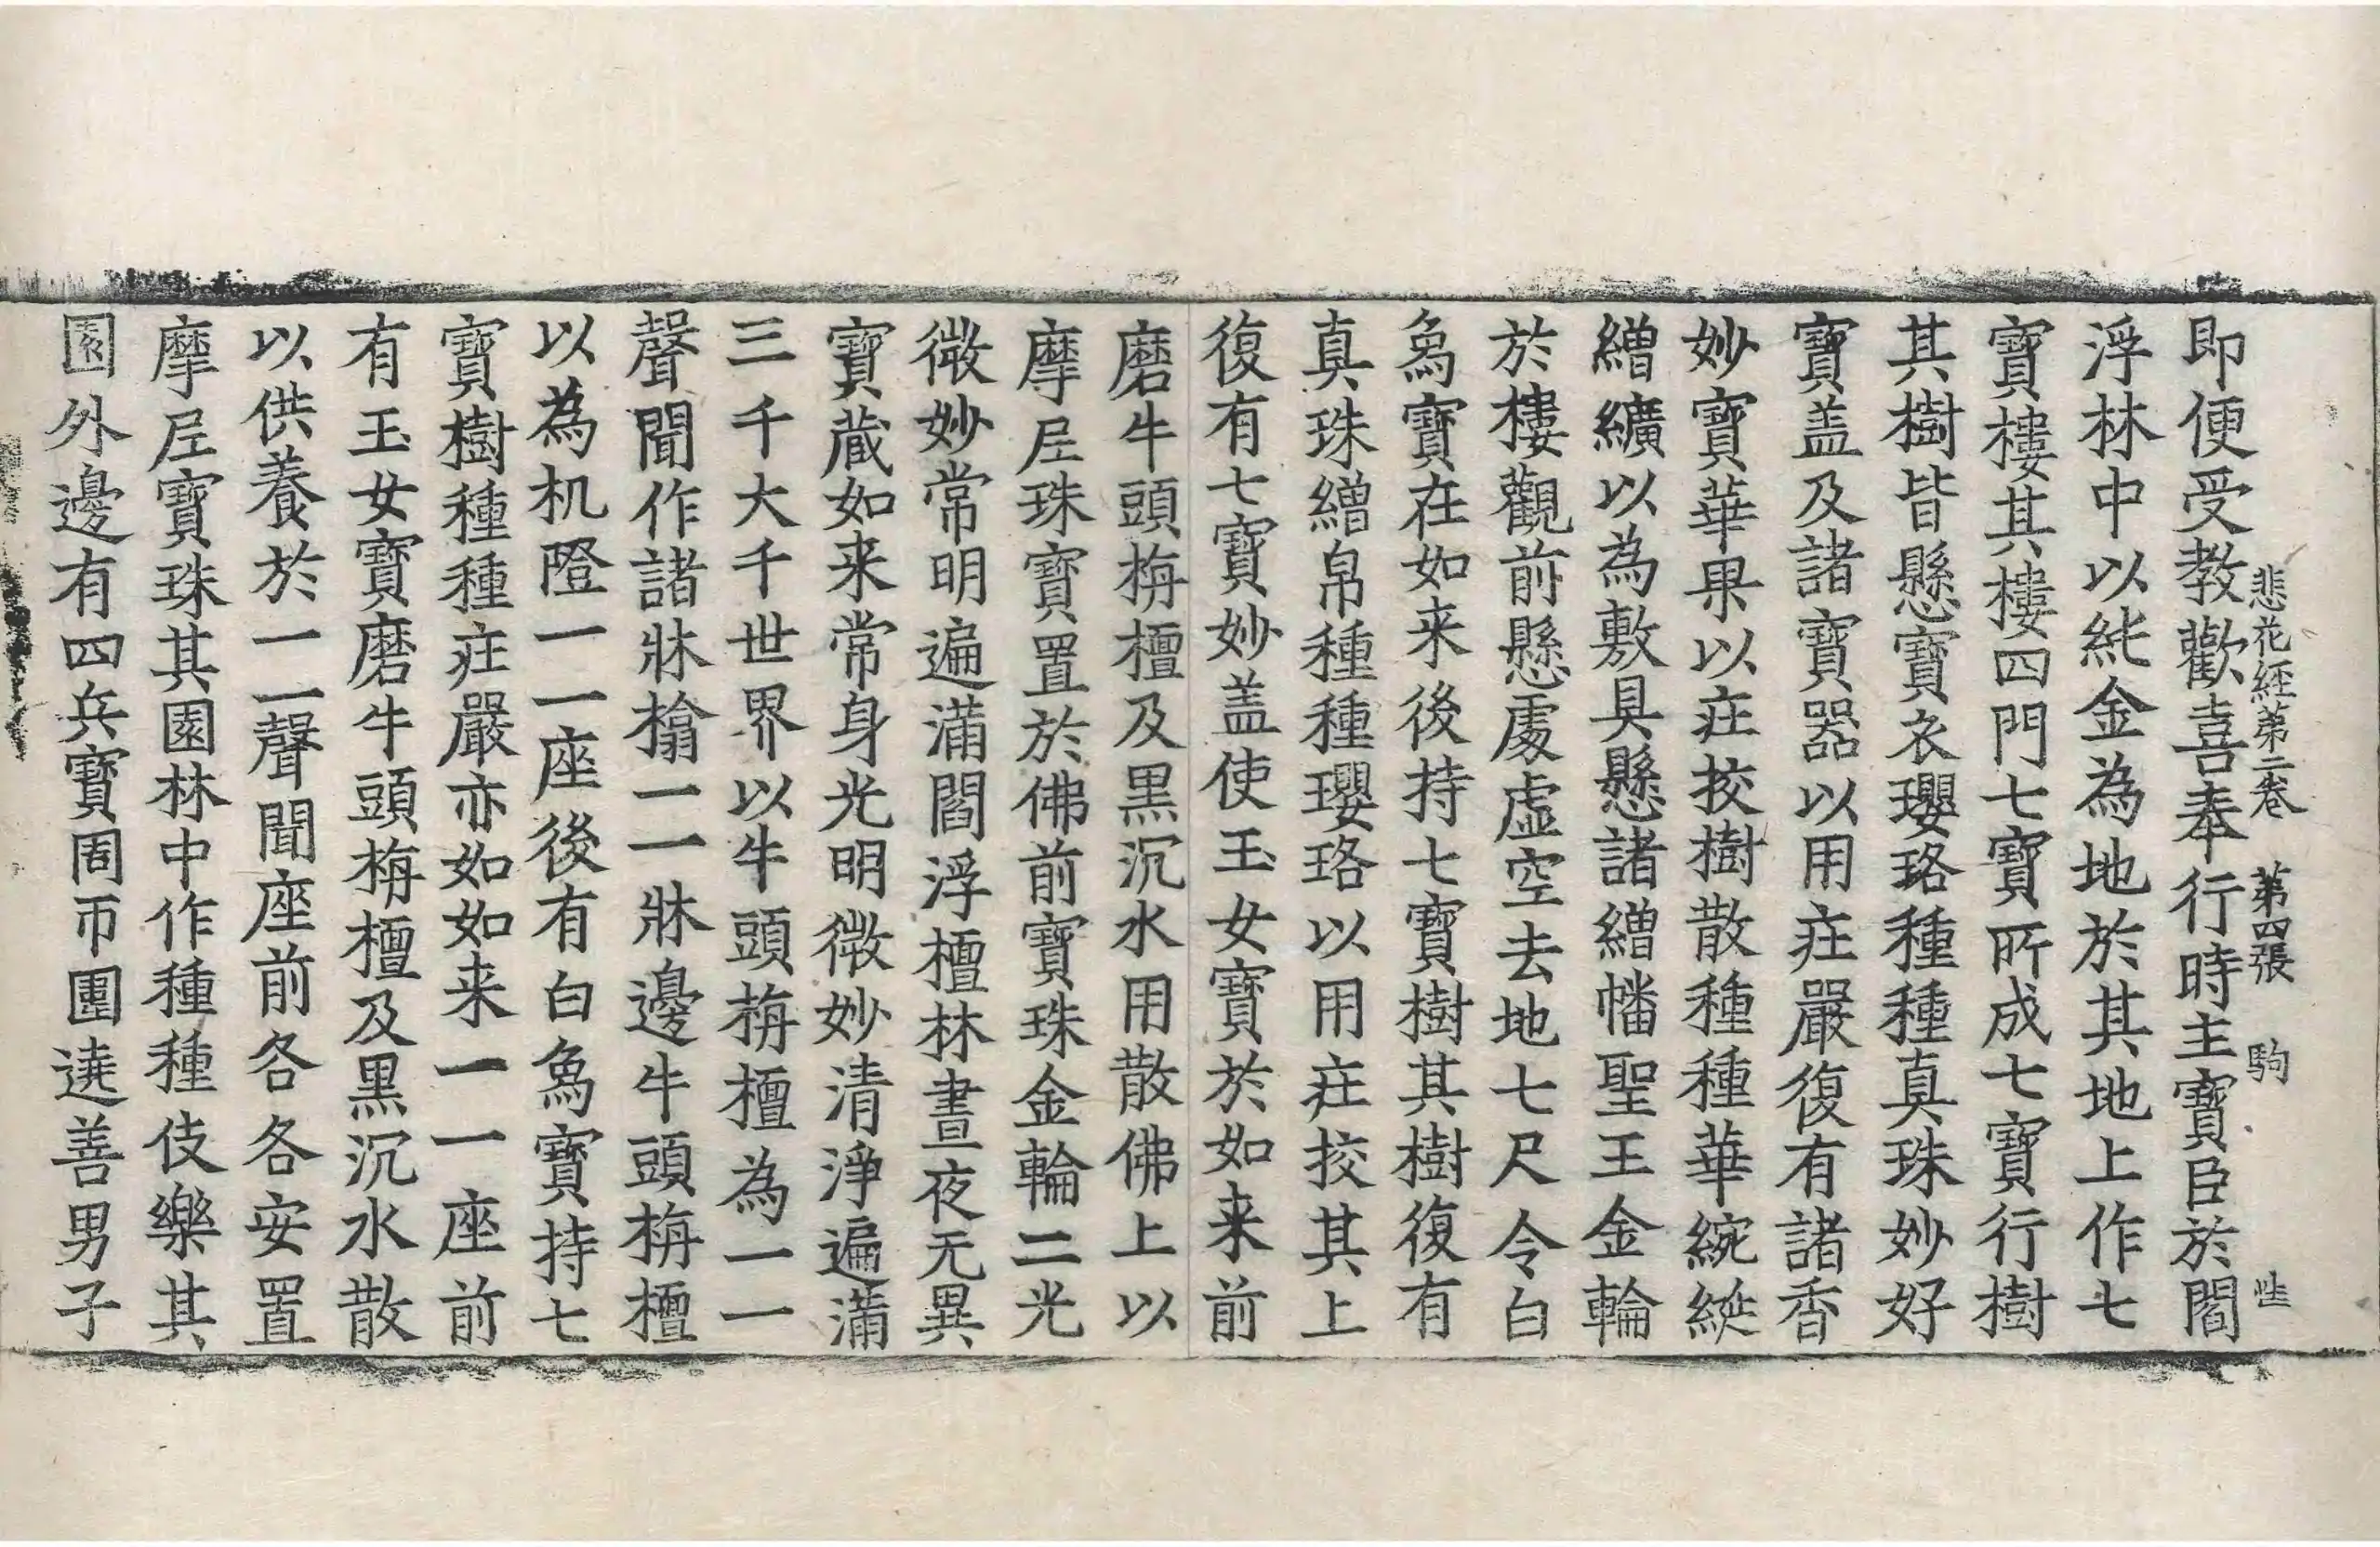 悲花経第二卷 第四張 駒
即便受教歡喜奉行時主寶臣於閻
浮林中以純金為地於其地上作七
寶樓其樓四門七寶所成七寶行樹
其樹皆懸寶衣瓔珞種種真珠妙好
寶盖及諸寶器以用庄嚴復有諸香
妙寶華果以庄挍樹散種種華綩綖
繒纊以為敷具懸諸繒幡聖王金輪
於樓觀前懸處虛空去地七尺令白
象寶在如来後持七寶樹其樹復有
真珠繒帛種種瓔珞以用庄挍其上
復有七寶妙盖使玉女寶於如来前
磨牛頭栴檀及黒沉水用散佛上以
摩尼珠寶置於佛前寶珠金輪二光
微妙常明遍滿閻浮檀林晝夜无異
寶蔵如来常身光明微妙清淨遍滿
三千大千世界以牛頭栴檀為一一
聲聞作諸牀榻一一牀邊牛頭栴檀
以為机隥一一座後有白象寶持七
寶樹種種庄嚴亦如如来一一座前
有玉女寶磨牛頭栴檀及黒沉水散
以供養於一一聲聞座前各各安置
摩尼寶珠其園林中作種種伎樂其
園外邊有四兵寶周帀圍遶善男子